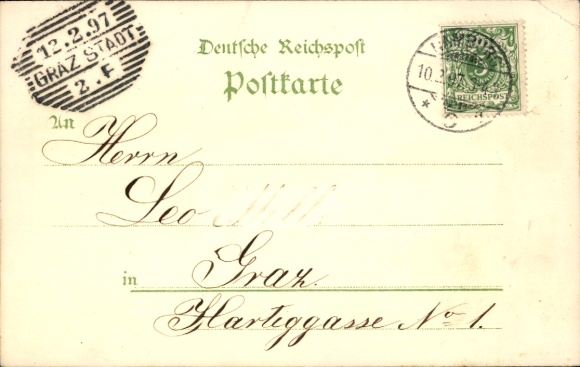 12.2.97
GRAZ STADT
2.F
Deutsche Reichspost
Postkarte
10.2.97
REICHSPOST
An
Herrn
Leo
in
Graz.
Harteggasse No 1.